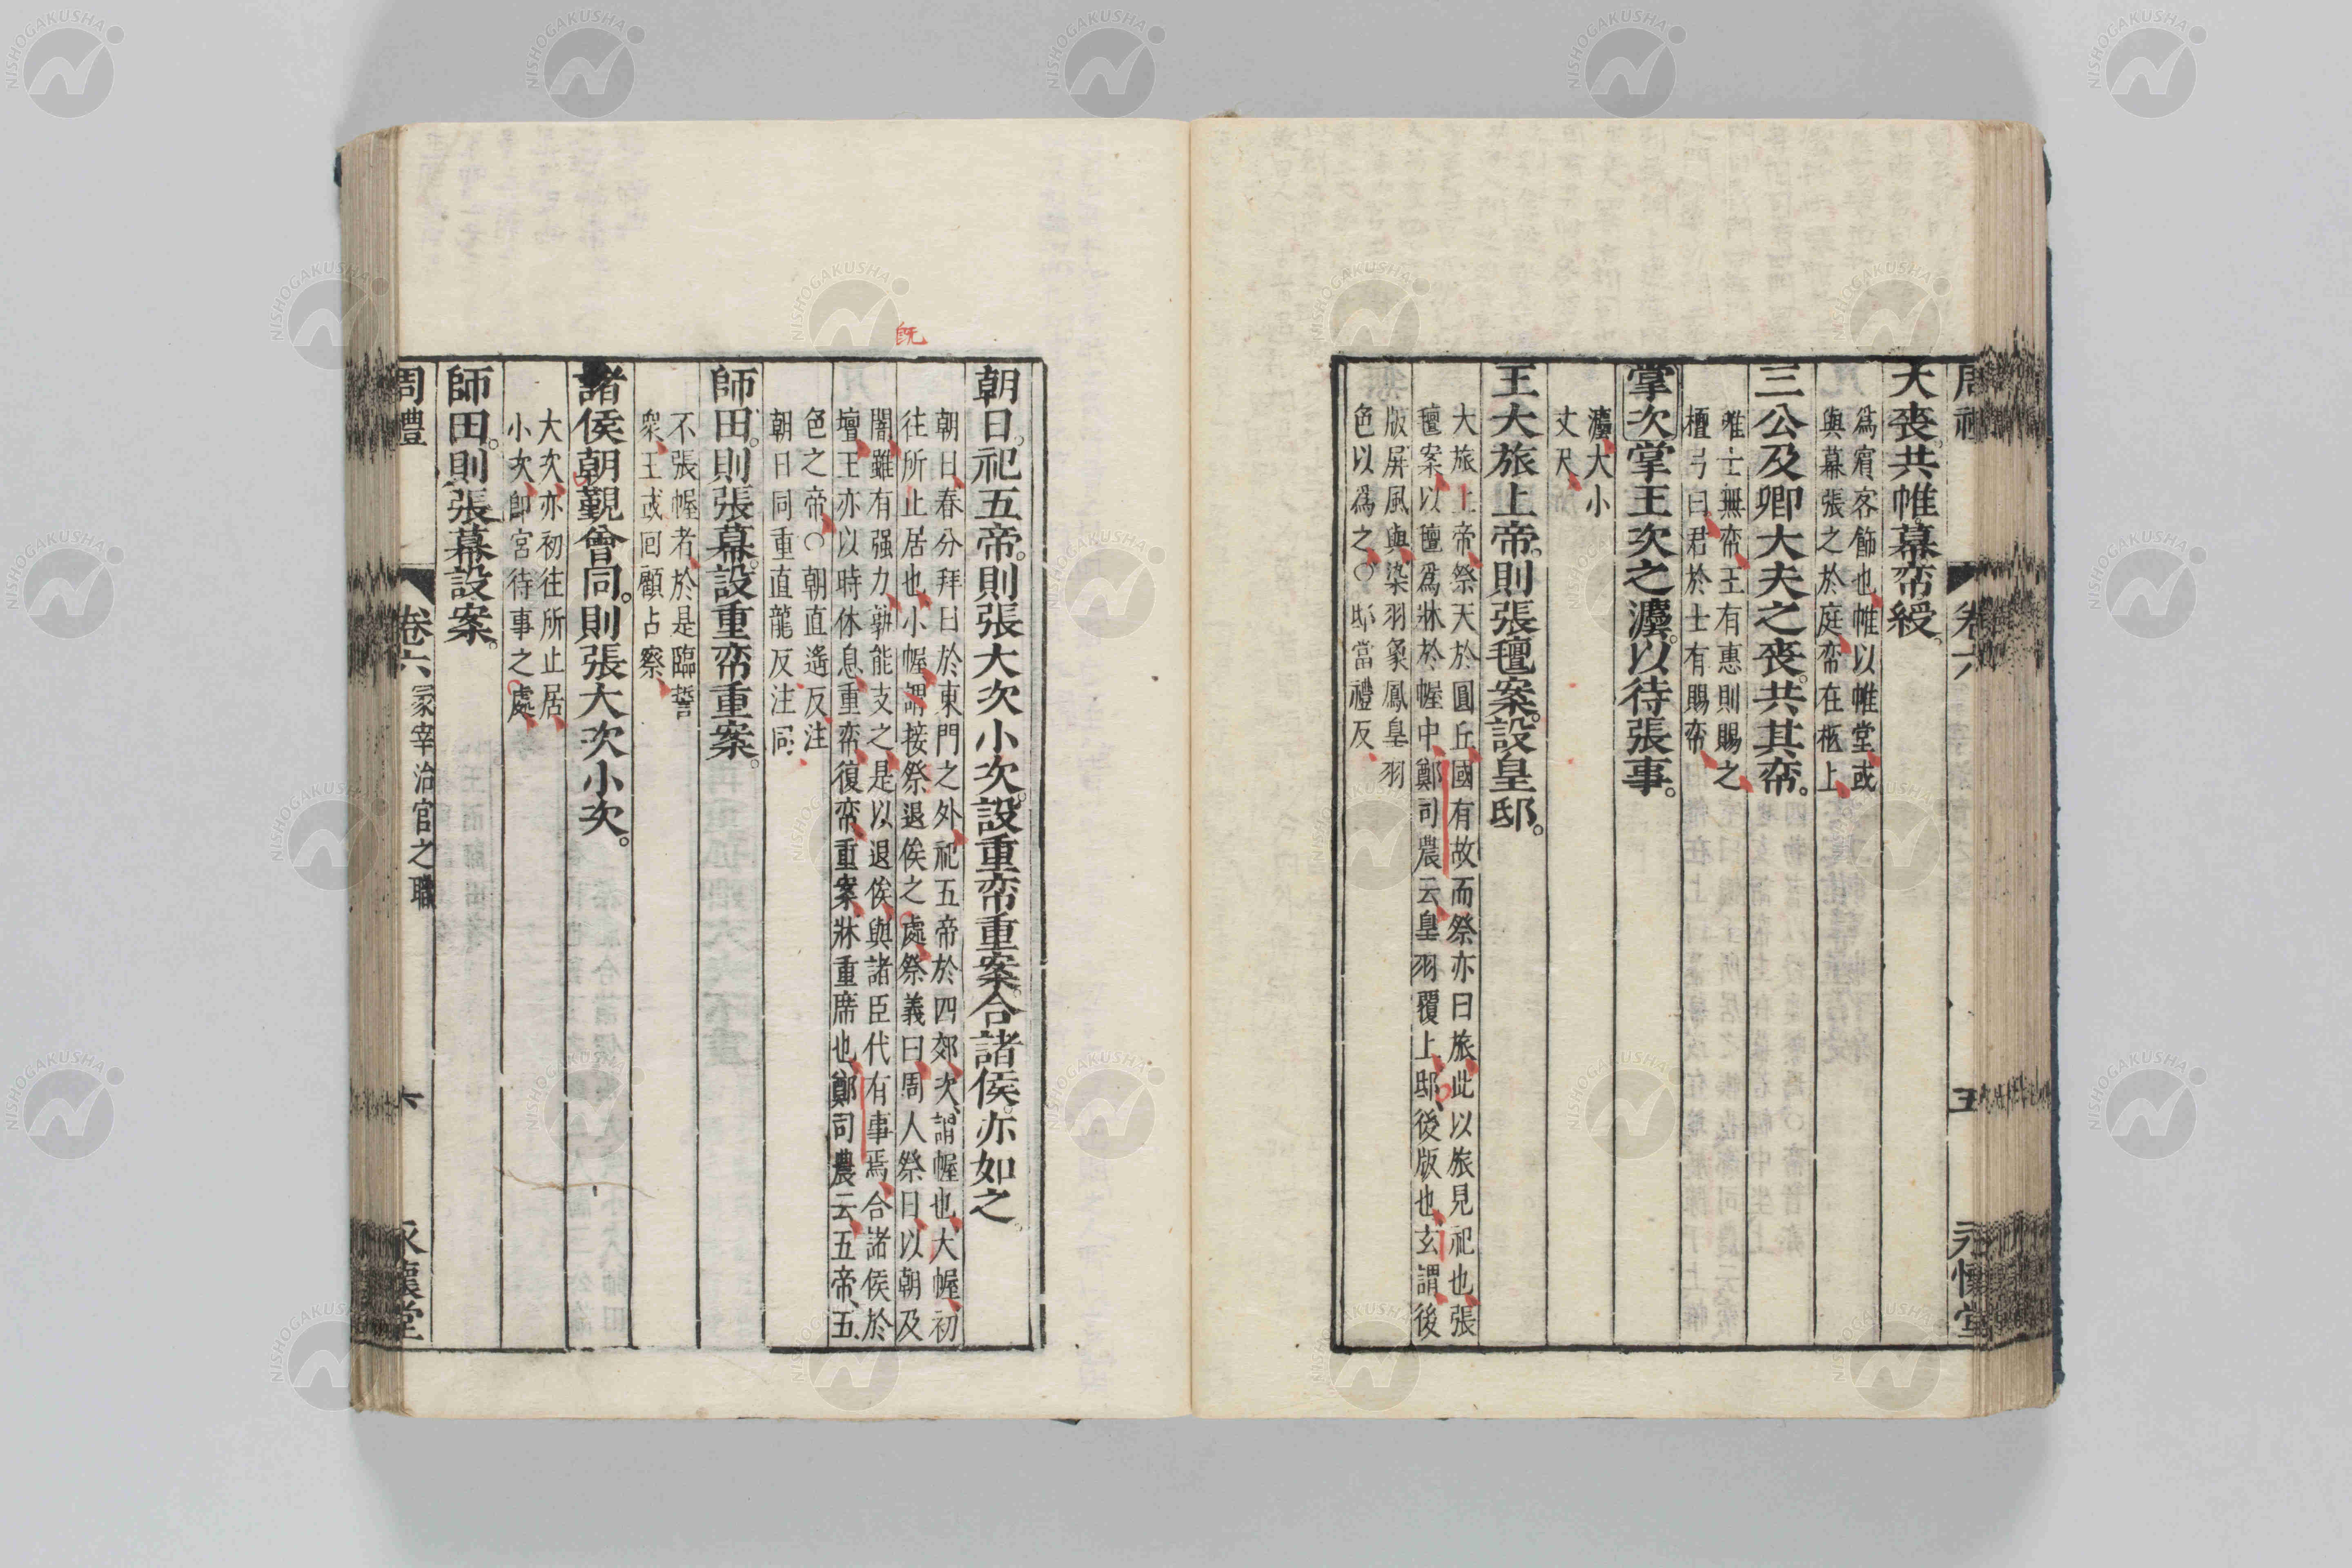 大喪共帷幕帟綬。
爲賓客飾也帷以帷堂或
與幕張之於庭帟在柩上
三公及卿大夫之喪。共其帟。
唯士無帟王有惠則賜之
檀弓曰君於士有賜帟
掌次掌王次之灋。以待張事。
灋大小
丈尺
王大旅上帝。則張氊案。設皇邸。
大旅上帝祭天於圓丘國有故而祭亦曰旅此以旅見祀也張
氊案以氊爲牀於幄中鄭司農云皇羽覆上邸後版也玄謂後
版屏風與染羽象鳳皇羽
色以爲之○邸當禮反
卷六
五
永懷堂
朝日。祀五帝。則張大次小次。設重帟重案。合諸侯。亦如之。
朝日春分拜日於東門之外祀五帝於四郊次謂幄也大幄初
往所止居也小幄謂接祭退俟之處祭義曰周人祭日以朝及
闇雖有强力孰能支之是以退俟與諸臣代有事焉合諸侯於
壇王亦以時休息重帟復帟重案牀重席也鄭司農云五帝五
色之帝○朝直遙反注
朝日同重直龍反注同
既
師田。則張幕。設重帟重案。
不張幄者於是臨誓
衆王或囘顧占察
諸侯朝覲會同。則張大次小次。
大次亦初往所止居
小次卽宮待事之處
師田。則張幕設案。
周禮
卷六
冢宰治官之職
六
永懷堂
NISHOGAKUSHA